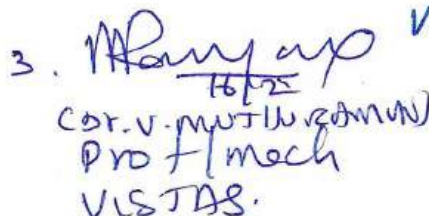 3.
16/2
(Dr. V. MUTHURAMAN)
Prof/Mech
VISTAS.